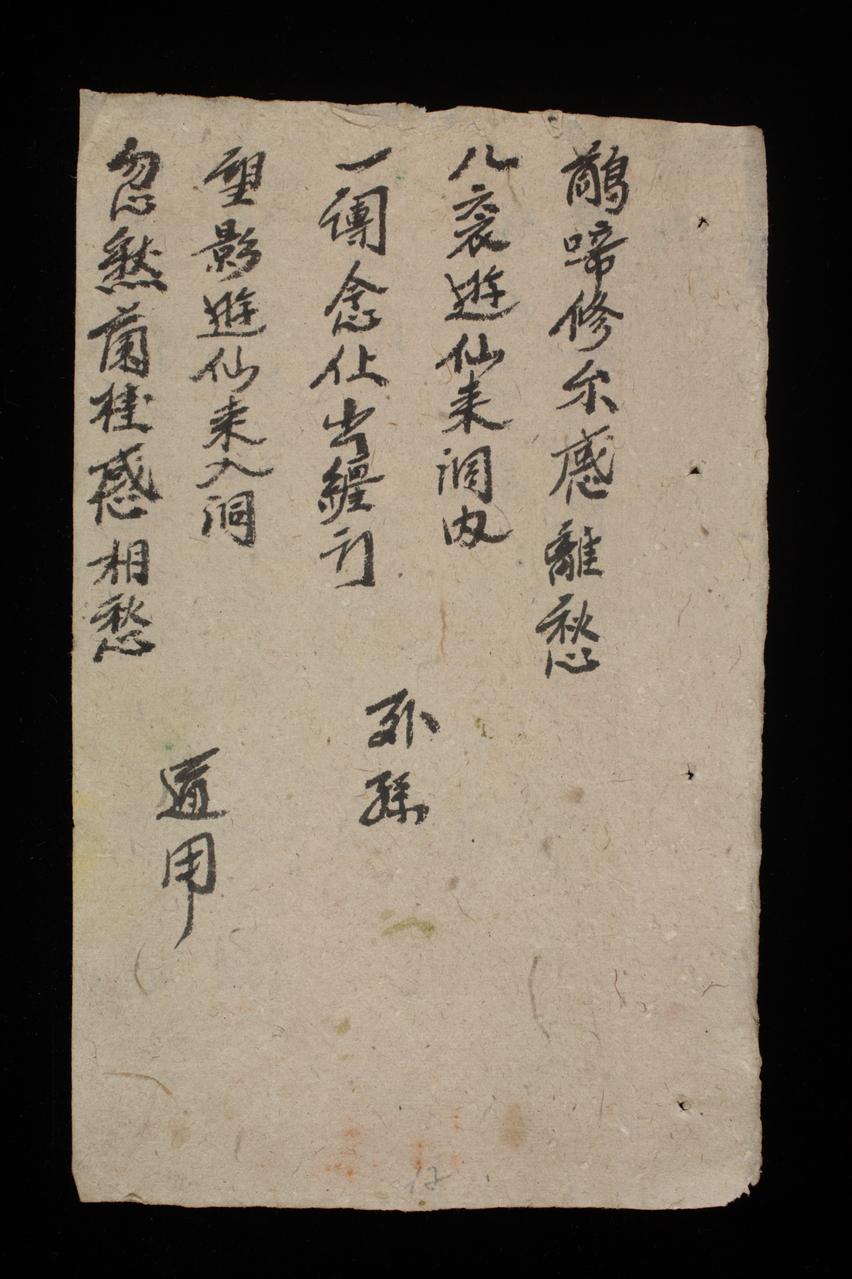 鵑啼修尔感離愁
八衮遊仙来洞内
一闻念仩出纏訂
望影遊仙来入洞
忽愁蘭桂感相愁
外孫
通用
12